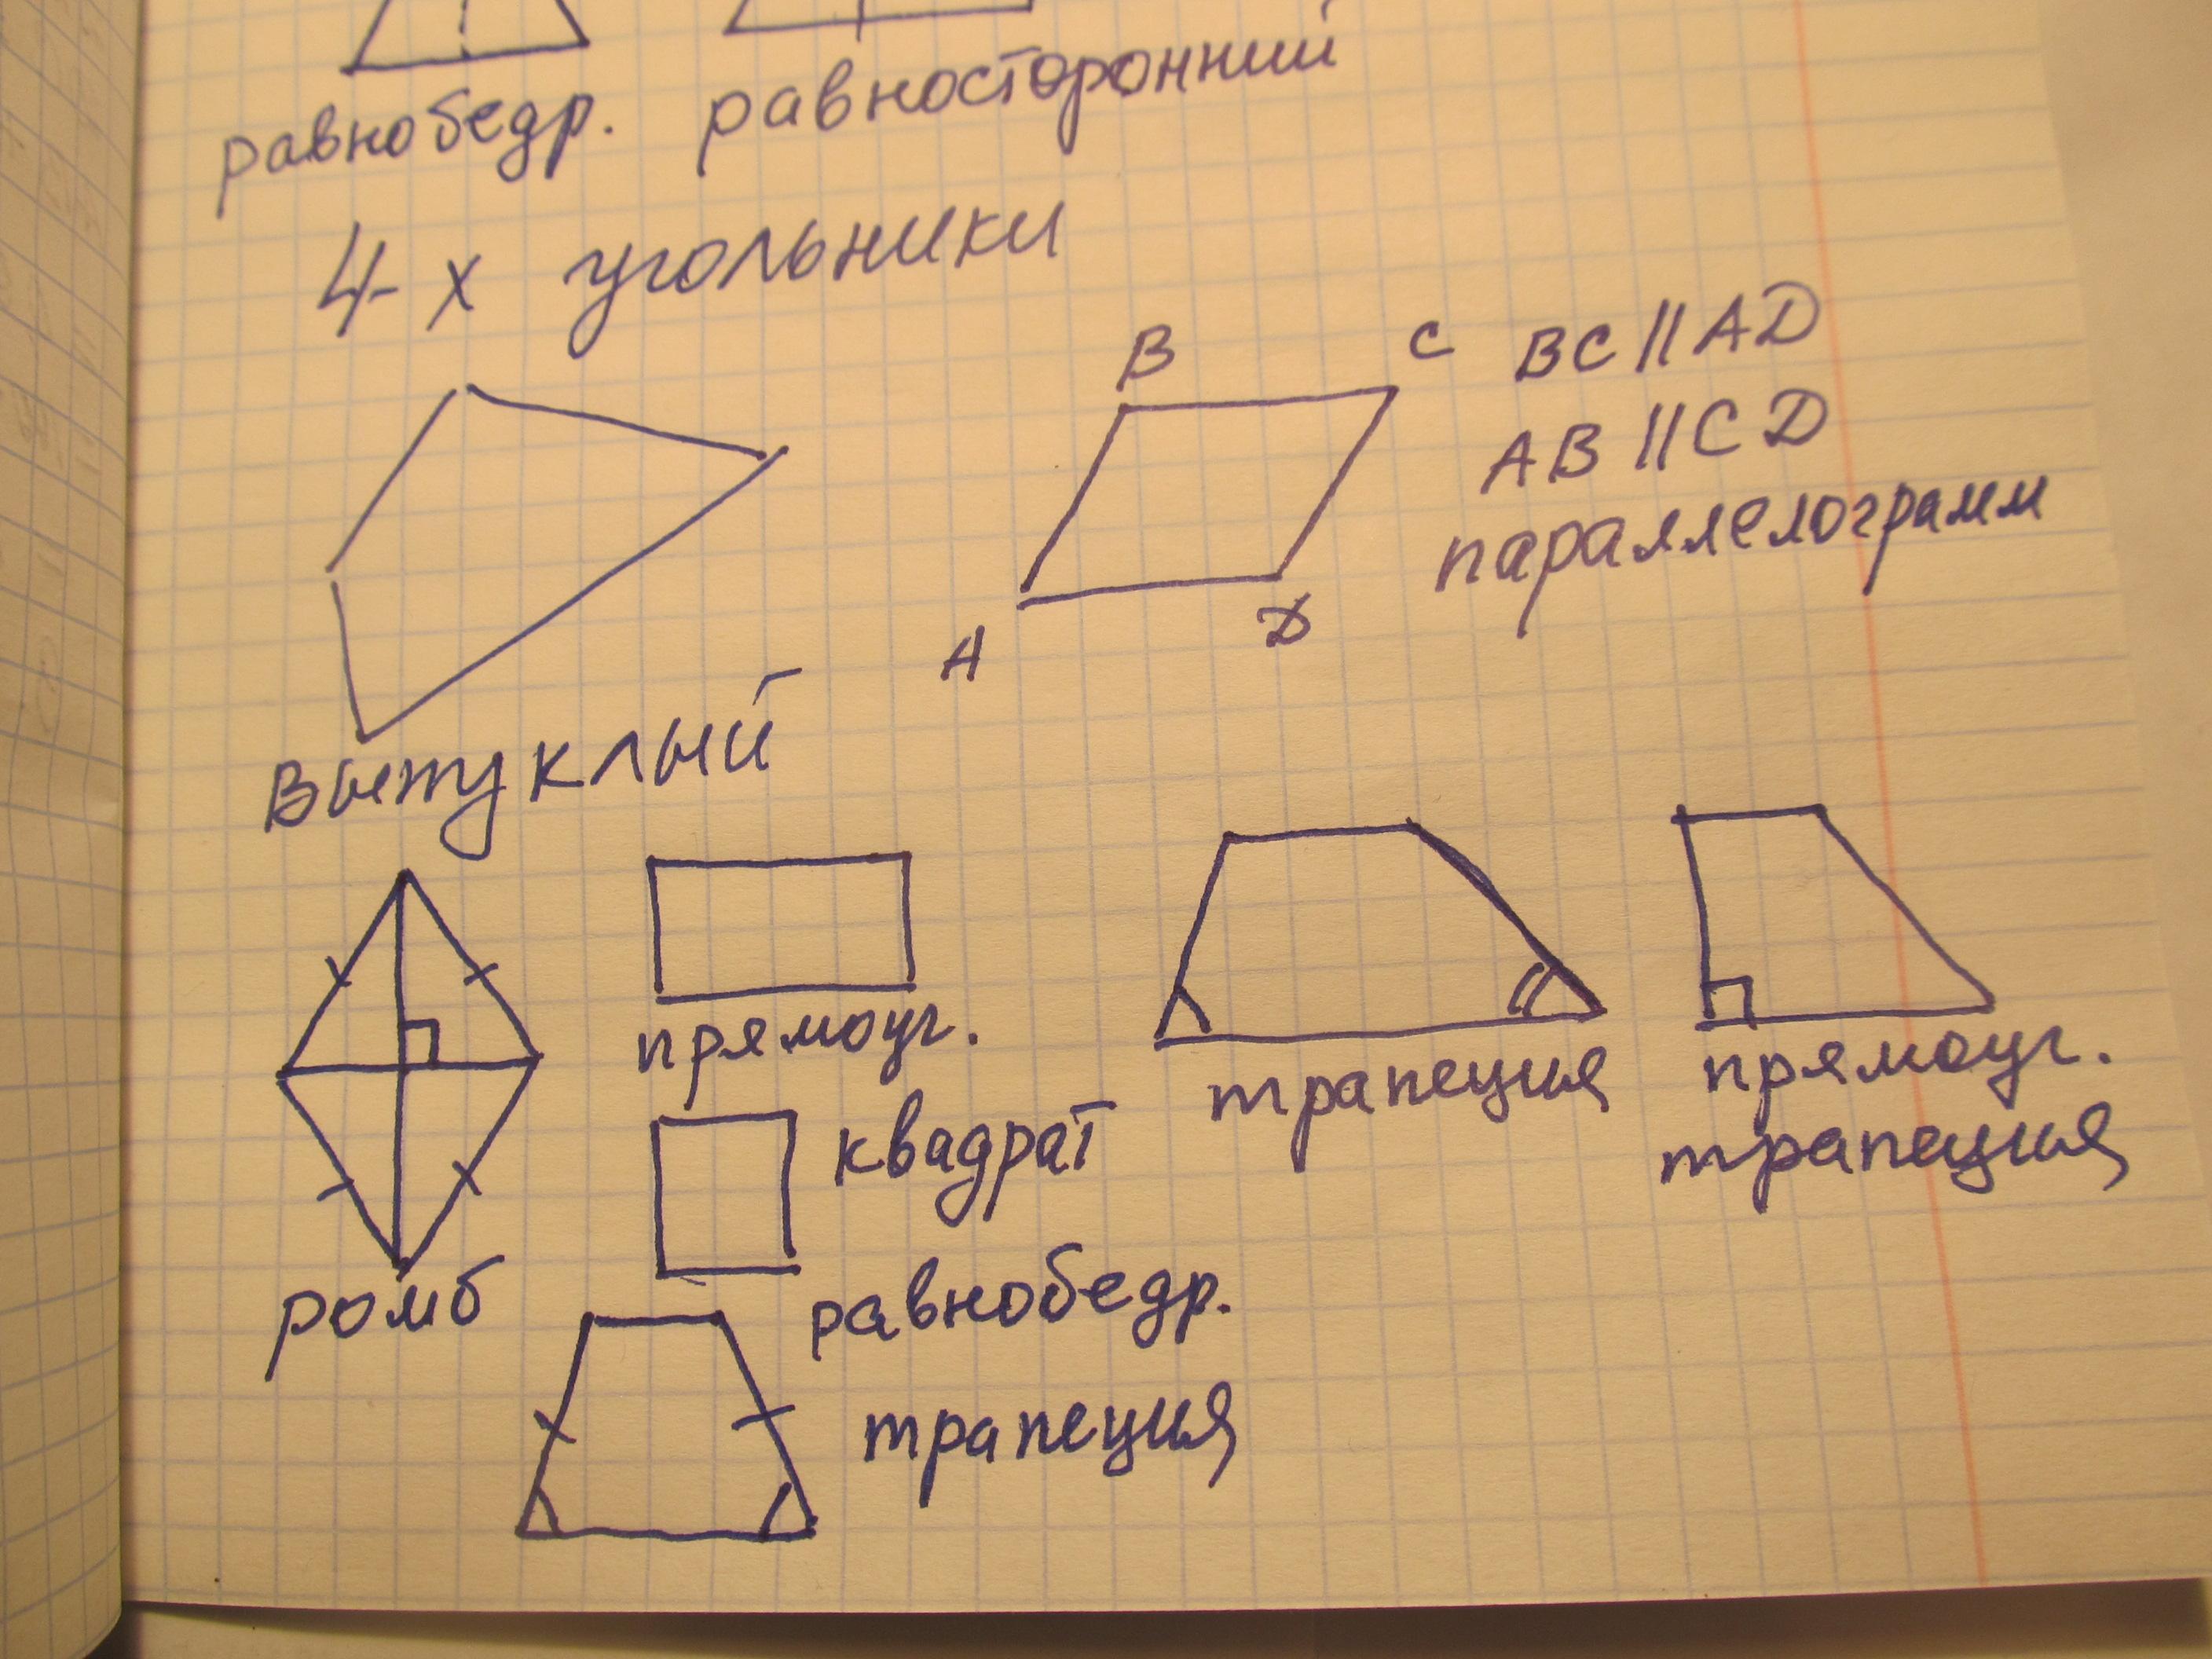 равнобедр. равносторонний
4-х угольники
B C
BC || AD
AB || CD
параллелограмм
A D
выпуклый
прямоуг.
трапеция
прямоуг.
трапеция
квадрат
ромб
равнобедр.
трапеция